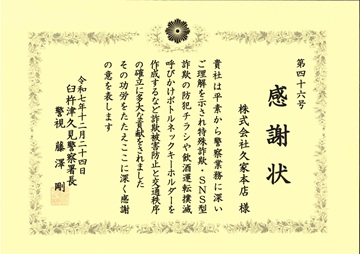 第四十六号
感謝状
株式会社久家本店 様
貴社は平素から警察業務に深い
ご理解を示され特殊詐欺・SNS型
詐欺の防犯チラシや飲酒運転撲滅
呼びかけボトルネックキーホルダーを
作成するなど詐欺被害防止と交通秩序
の確立に多大な貢献をされました
その功労をたたえここに深く感謝
の意を表します
令和七年十二月二十四日
臼杵津久見警察署長
警視 藤澤 剛